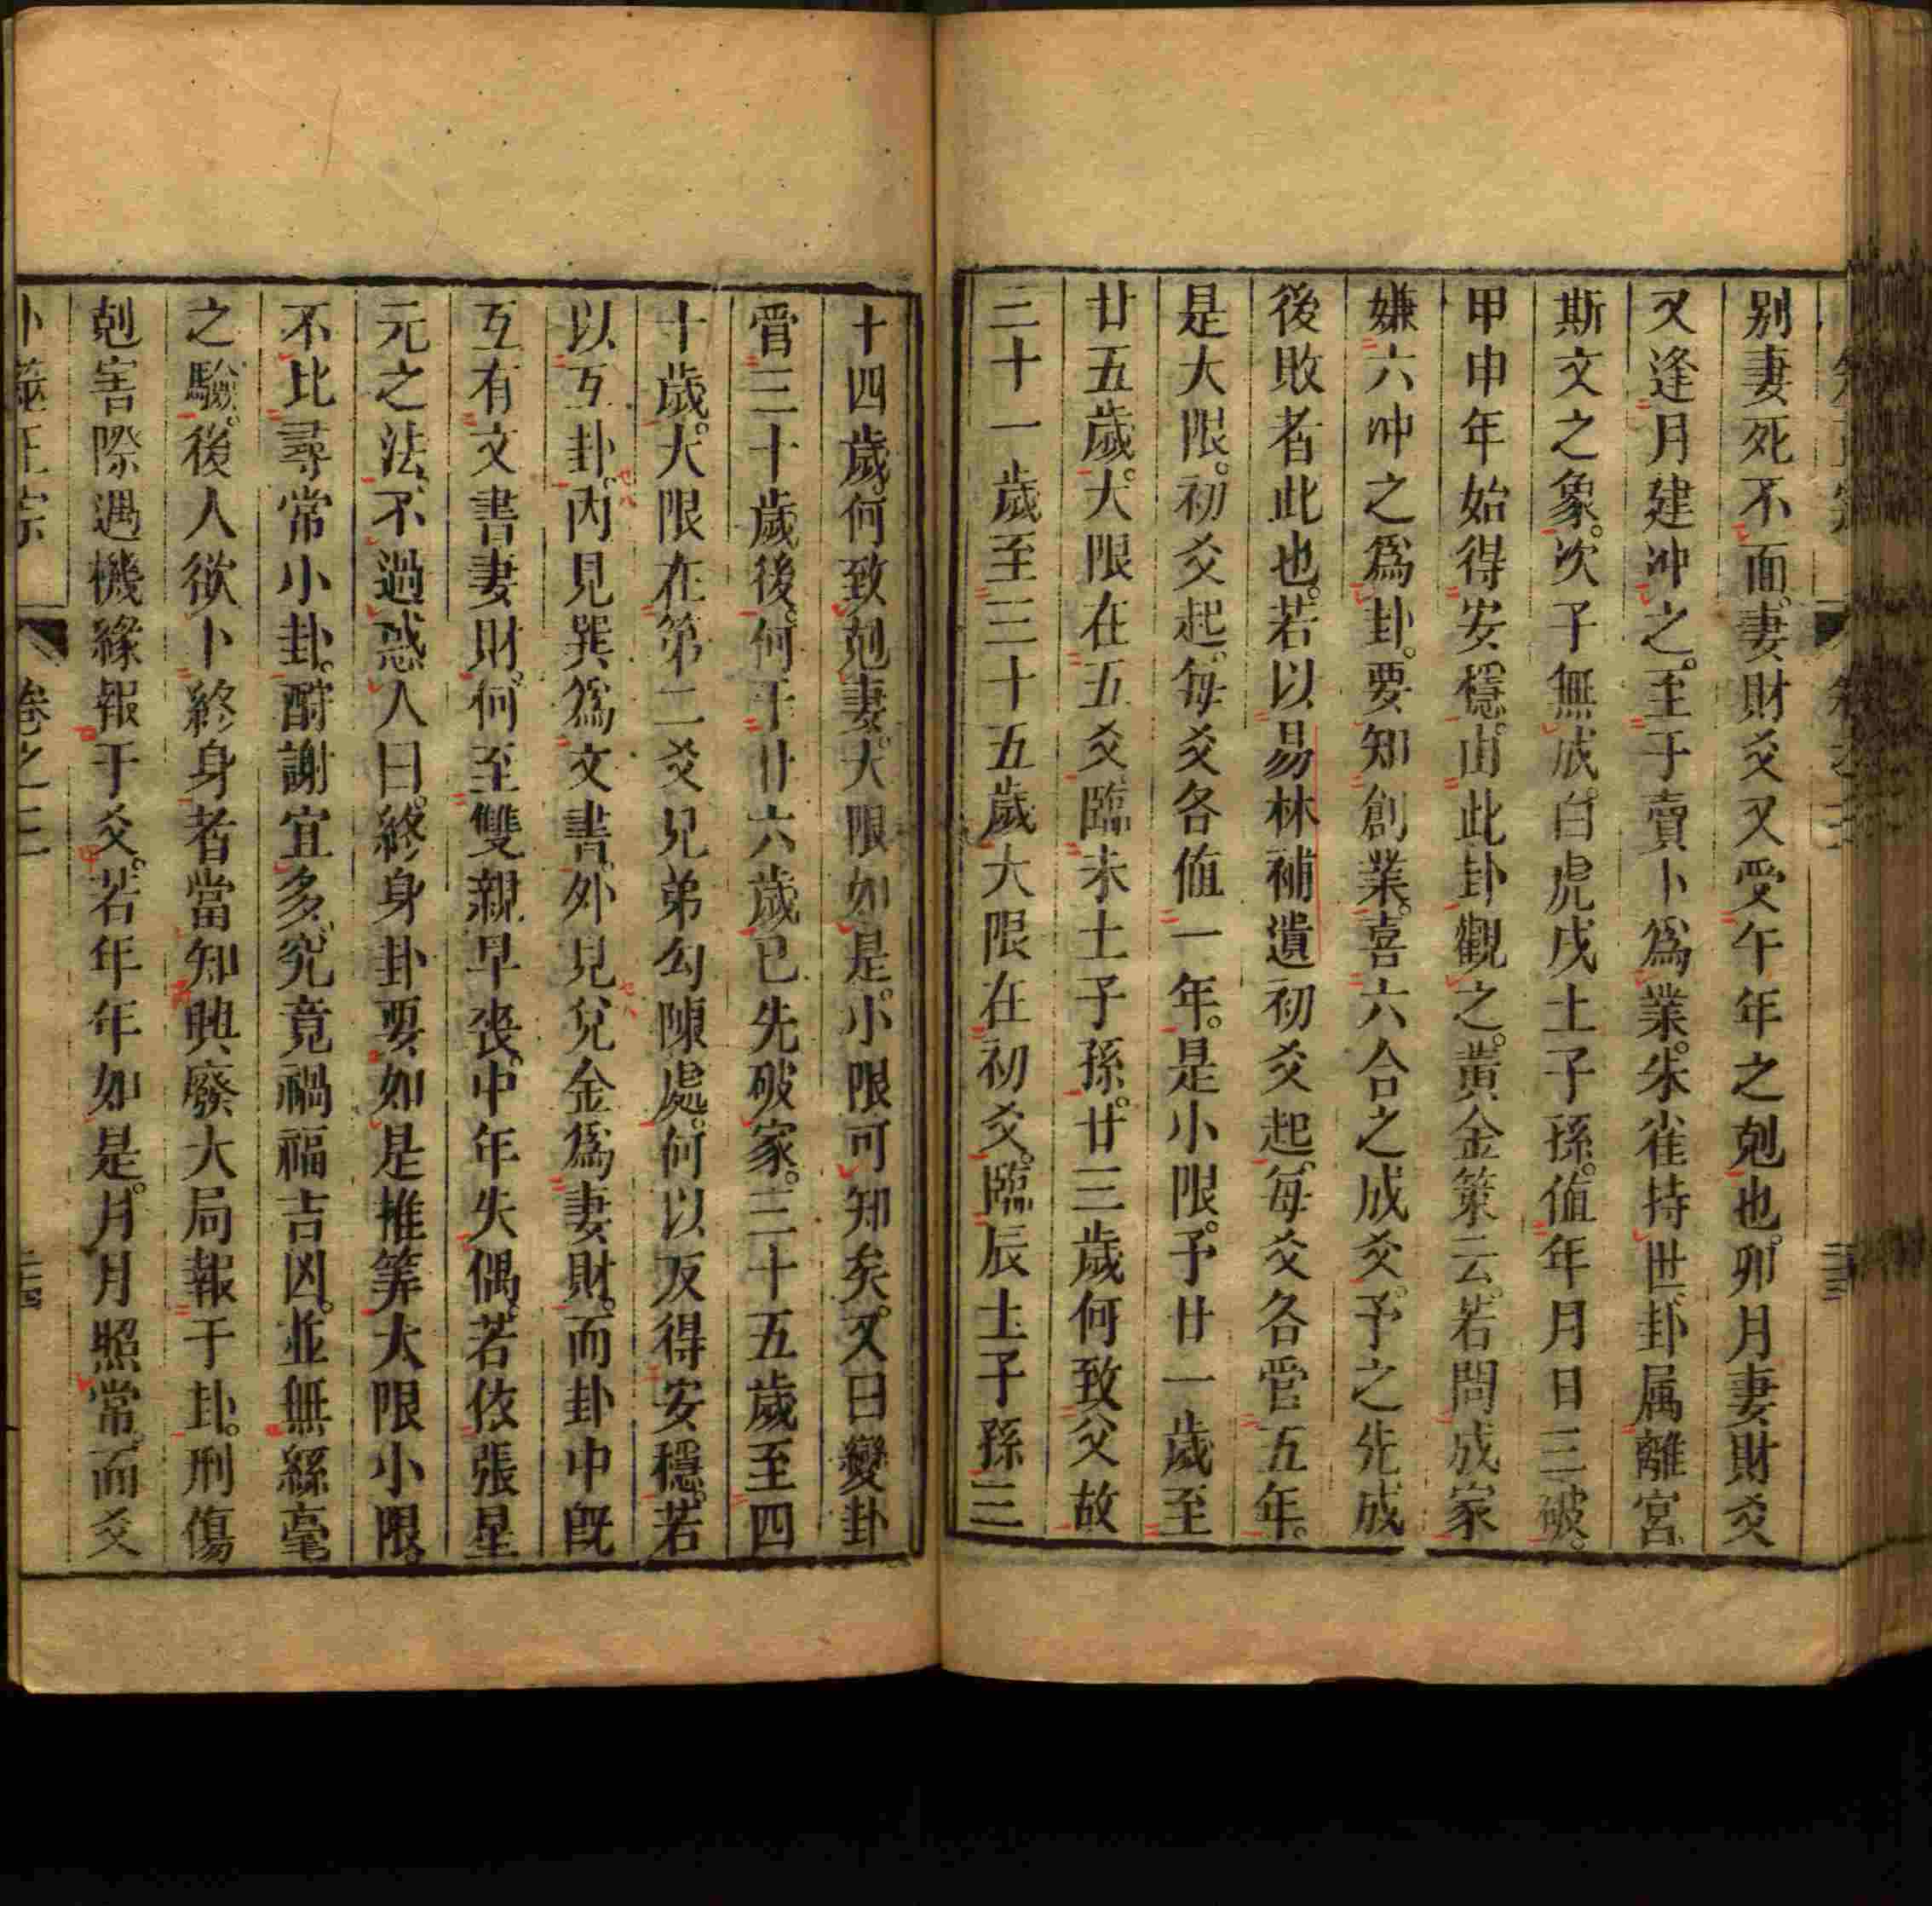 别妻死不面。妻財爻又受午年之剋也。卯月妻財爻
又逢月建冲之。至于賣卜爲業。朱雀持世。卦属離宮。
斯文之象。次子無成。白虎戌土子孫。值年月日三破。
甲申年始得安穩。由此卦觀之。黃金策云。若問成家
嫌六冲之爲卦。要知創業。喜六合之成爻。予之先成
後敗者此也。若以易林補遺初爻起。每爻各管五年。
是大限。初爻起。每爻各值一年。是小限。予廿一歲至
廿五歲。大限在五爻臨未土子孫。廿三歲何致父故
三十一歲至三十五歲大限在初爻。臨辰土子孫三
十四歲。何致剋妻。大限如是。小限可知矣。又曰變卦
管三十歲後。何于廿六歲已先破家。三十五歲至四
十歲。大限在第二爻兄弟勾陳處。何以反得安穩。若
以互卦。內見巽爲文書。外見兌金爲妻財。而卦中旣
互有文書妻財。何至雙親早喪。中年失偶。若依張星
元之法。不過惑人曰。終身卦要如是推筭大限小限。
不比尋常小卦。酧謝宜多。究竟禍福吉凶。並無絲毫
之驗。後人欲卜終身者當知興廢大局報于卦。刑傷
剋害際遇機緣報于爻。若年年如是。月月照常。而爻
卜筮正宗
卷之三